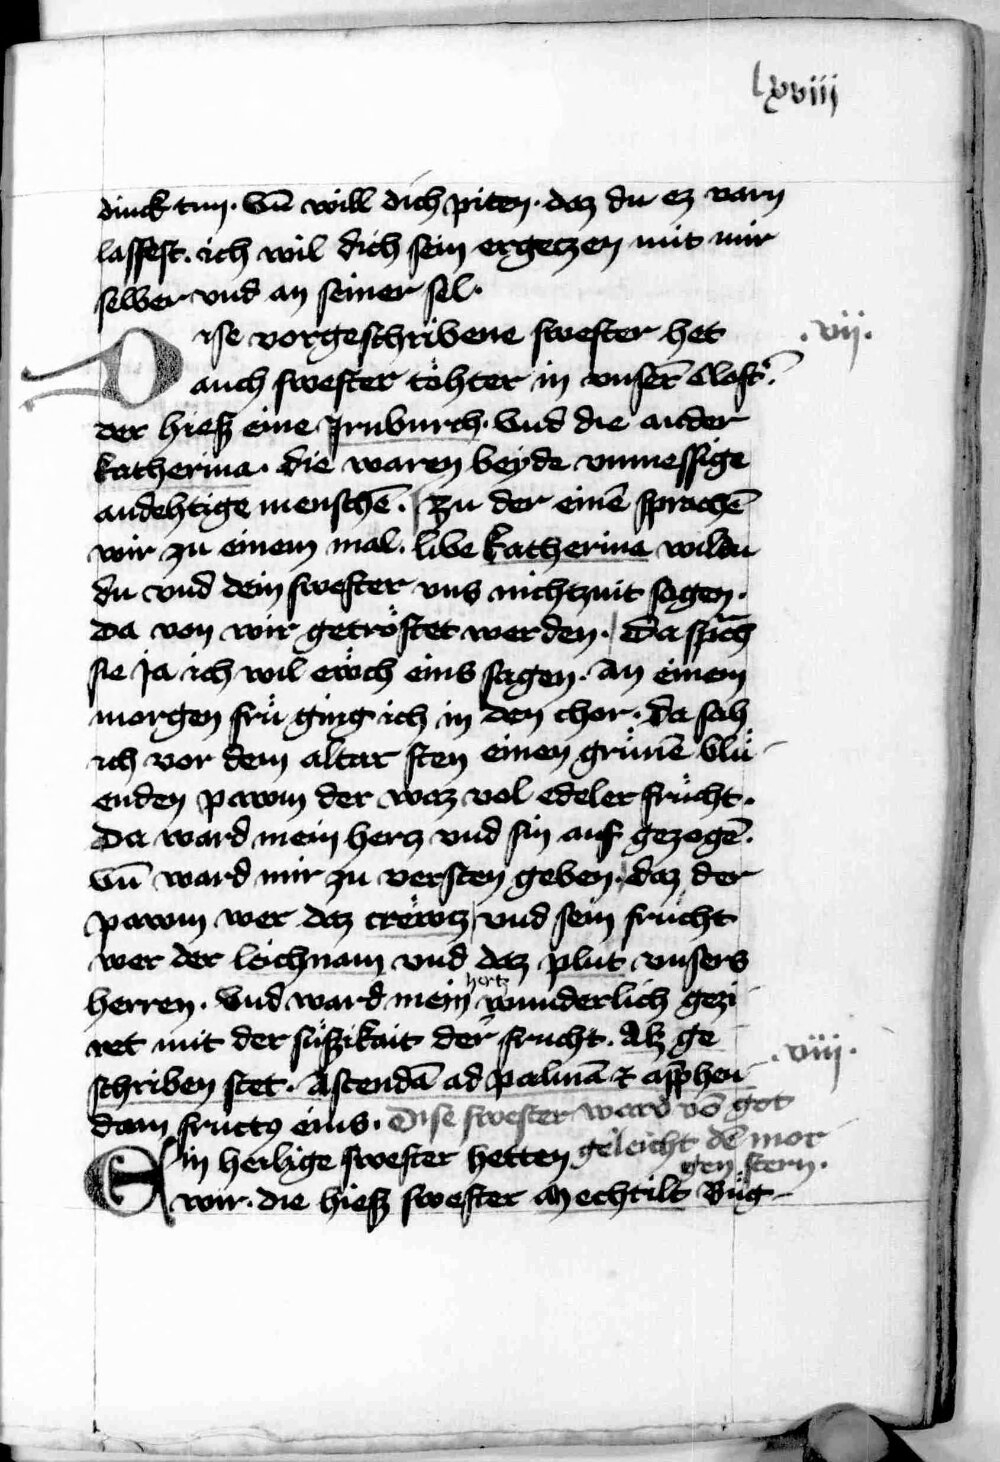 lxviii
dinck tun. Vn̄ will dich piten. daz du ez varn
lassest. ich wil dich sein ergetzen mit mir
selber vnd an seiner sel.
.vii.
Dise vorgeschribene swester het
auch swester töhter in vnser̄ clost̄.
der hiesz eine Jrnburch. Vnd die ander
katherina. die waren beyde vnmessige
andehtige menschē. Zu der einē sprachē
wir zu einem mal. libe katherina wildu
du vnd dein swester vns nichtznit sagen.
da von wir getröstet werden. Da sp̄ch
sie ja ich wil ewch eins sagen. An einem
morgen frü ging ich in den chor. da sah
ich vor dem altar sten einen grünē blü
enden pawm der waz vol edeler frücht.
Da ward mein hertz vnd sin auf gezogē.
Vn̄ ward mir zu versten geben. daz der
pawm wer daz crewtz vnd sein frücht
wer der leichnam vnd daz plut vnsers
herren. Vnd ward mein hertz wunderlich gezi
ret mit der süszikait der frucht. Alz ge
schriben stet. Ascendā ad palmā & app̄hen
.viii.
dam fructꝰ eius. Dise swester ward vō got
geleicht dē mor
gen stern.
Ein heilige swester hetten
wir. die hiesz swester Mechtilt Büg